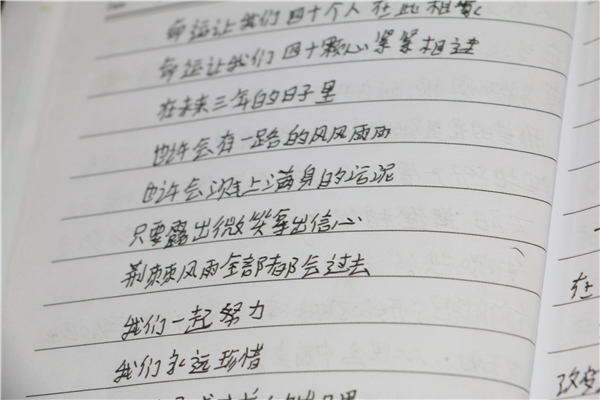 命运让我们四十个人在此相聚
命运让我们四十颗心紧紧相连
在未来三年的日子里
也许会有一路的风风雨雨
也许会沾上满身的污泥
只要露出微笑拿出信心
荆棘风雨全部都会过去
我们一起努力
我们永远珍惜
在
改变